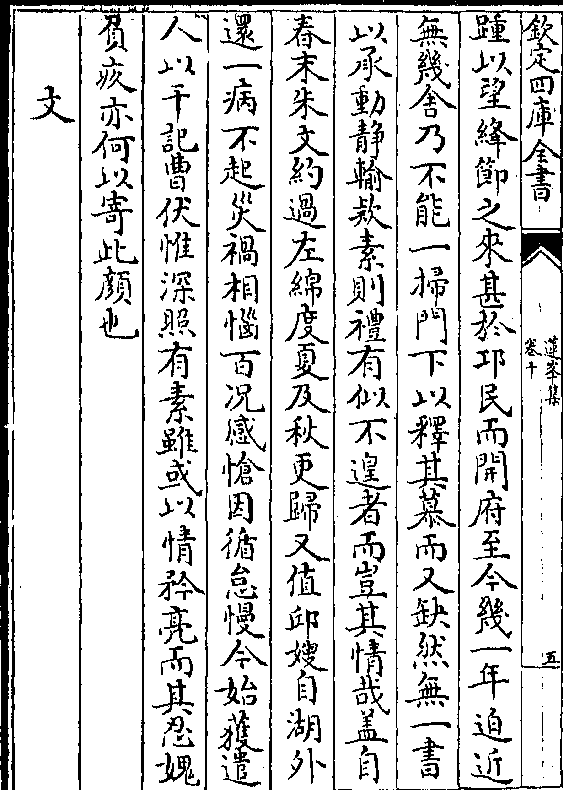 欽定四庫全書
蓮峯集
卷十
五
踵以望絳節之來甚於邛民而開府至今幾一年迫近
無幾舍乃不能一掃門下以釋其慕而又缺然無一書
以承動静輸欵素則禮有似不遑者而豈其情哉盖自
春末朱文約過左綿度夏及秋更歸又值邱嫂自湖外
還一病不起災禍相惱百况感愴因循怠慢今始獲遣
人以干記曹伏惟深照有素雖或以情矜亮而其忍媿
負疚亦何以寄此顔也
文